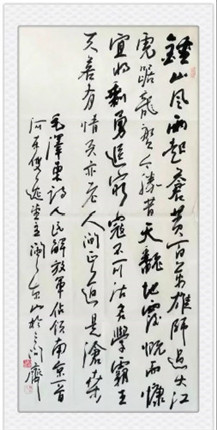 鍾山風雨起蒼黃百萬雄師過大江
虎踞龍盤今勝昔天翻地覆慨而慷
宜將剩勇追窮寇不可沽名學霸王
天若有情天亦老人間正道是滄桑
毛澤東詩人民解放軍佔領南京一首
逸堂主 山於 齋